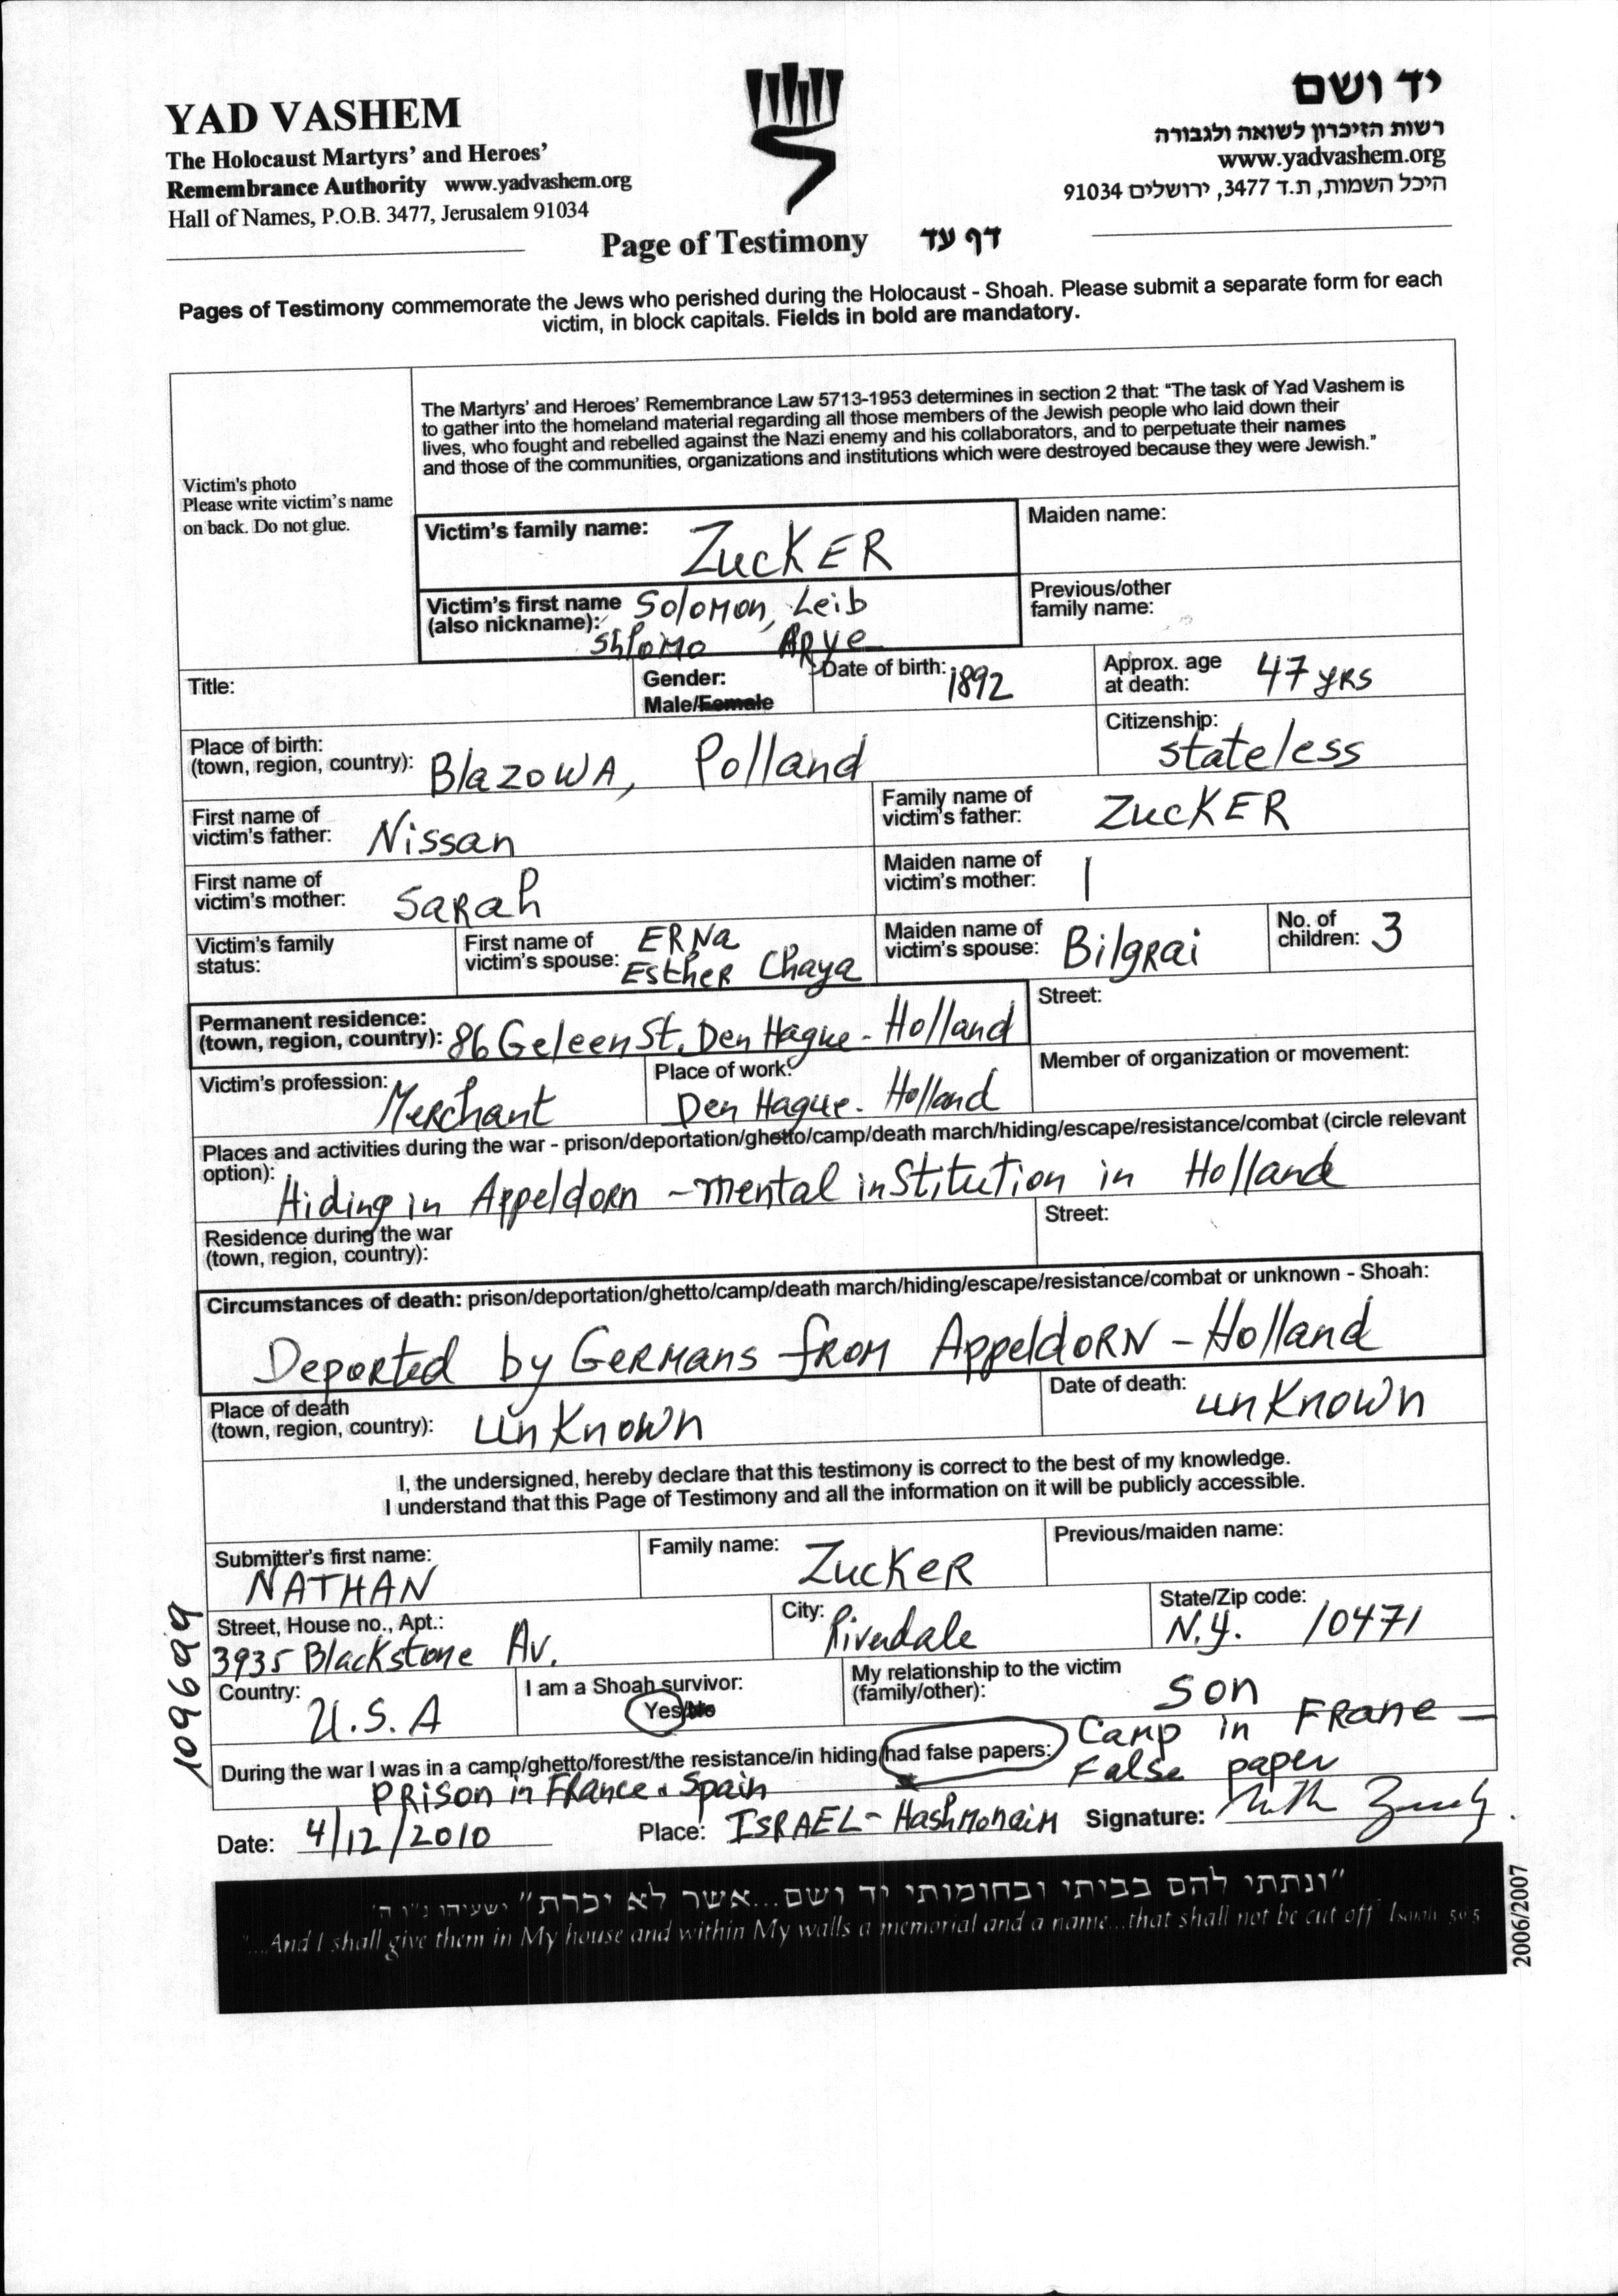 YAD VASHEM
The Holocaust Martyrs' and Heroes'
Remembrance Authority www.yadvashem.org
Hall of Names, P.O.B. 3477, Jerusalem 91034
יד ושם
רשות הזיכרון לשואה ולגבורה
www.yadvashem.org
היכל השמות, ת.ד 3477, ירושלים 91034
Page of Testimony דף עד
Pages of Testimony commemorate the Jews who perished during the Holocaust - Shoah. Please submit a separate form for each
victim, in block capitals. Fields in bold are mandatory.
Victim's photo
Please write victim's name
on back. Do not glue.
The Martyrs' and Heroes' Remembrance Law 5713-1953 determines in section 2 that: "The task of Yad Vashem is
to gather into the homeland material regarding all those members of the Jewish people who laid down their
lives, who fought and rebelled against the Nazi enemy and his collaborators, and to perpetuate their names
and those of the communities, organizations and institutions which were destroyed because they were Jewish."
Victim's family name: ZucKER
Maiden name:
Victim's first name (also nickname): Solomon, Leib
Shlomo Arye
Previous/other
family name:
Title:
Gender:
Male/Female
Date of birth: 1892
Approx. age
at death: 47 yRS
Place of birth:
(town, region, country): BlazowA, Polland
Citizenship:
stateless
First name of
victim's father: Nissan
Family name of
victim's father: ZucKER
First name of
victim's mother: SaRah
Maiden name of
victim's mother:
Victim's family
status:
First name of
victim's spouse: ERNa
EstheR Chaya
Maiden name of
victim's spouse: BilgRai
No. of
children: 3
Permanent residence:
(town, region, country): 86 Geleen St. Den Hague - Holland
Street:
Victim's profession: MeRchant
Place of work:
Den Hague. Holland
Member of organization or movement:
Places and activities during the war - prison/deportation/ghetto/camp/death march/hiding/escape/resistance/combat (circle relevant
option):
Hiding in AppeldoRn - mental institution in Holland
Residence during the war
(town, region, country):
Street:
Circumstances of death: prison/deportation/ghetto/camp/death march/hiding/escape/resistance/combat or unknown - Shoah:
DepoRted by GeRMans fRoM AppeldoRN - Holland
Place of death
(town, region, country): unKnown
Date of death: unKnown
I, the undersigned, hereby declare that this testimony is correct to the best of my knowledge.
I understand that this Page of Testimony and all the information on it will be publicly accessible.
Submitter's first name:
NATHAN
Family name: ZucKeR
Previous/maiden name:
Street, House no., Apt.:
3935 Blackstone Av.
City: Riverdale
State/Zip code:
N.Y. 10471
Country: U.S.A
I am a Shoah survivor:
Yes/No
My relationship to the victim
(family/other): son
During the war I was in a camp/ghetto/forest/the resistance/in hiding/had false papers: Camp in FRane -
False paper
PRison in FRance & Spain
Date: 4/12/2010
Place: ISRAEL - HashMonaiM
Signature:
109699
"ונתתי להם בביתי ובחומותי יד ושם...אשר לא יכרת" ישעיהו נ"ו ה'
"...And I shall give them in My house and within My walls a memorial and a name...that shall not be cut off" Isaiah 56:5
2006/2007